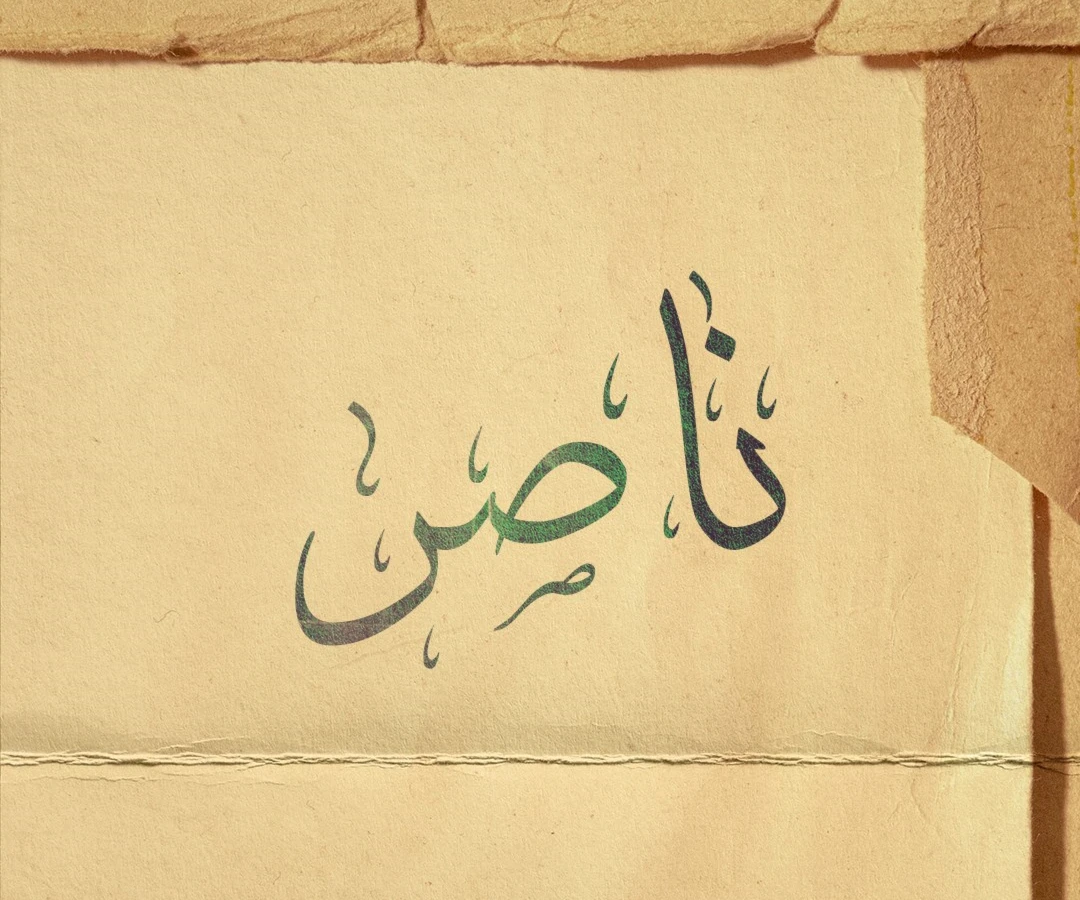 ناصر